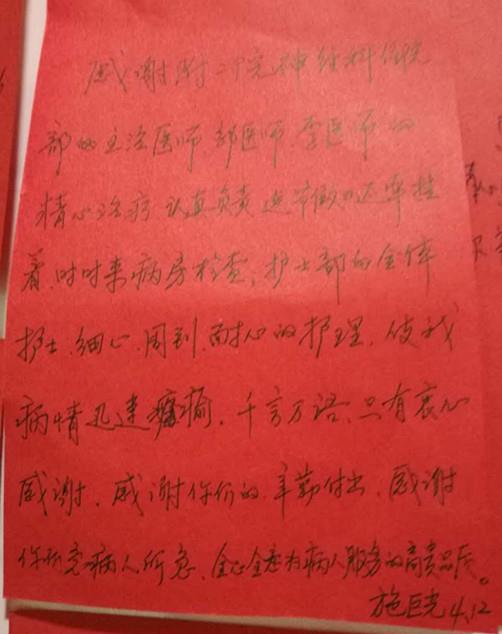 感谢附二院神经科住院
部的主治医师.郭医师.李医师的
精心治疗认真负责.连节假日还牵挂
着.时时来病房检查、护士部的全体
护士.细心.周到.耐心的护理.使我
病情迅速痊愈.千言万语.只有衷心
感谢.感谢你们的辛勤付出.感谢
你们克病人所急.全心全意为病人服务的高贵品质。
施巨光4.12